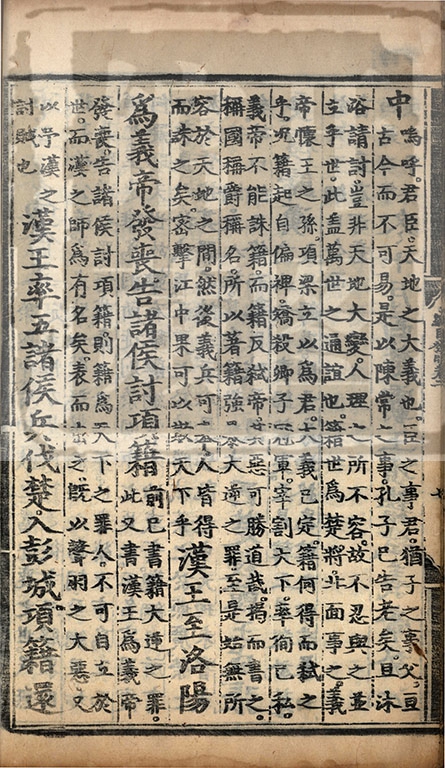 中
嗚呼君臣天地之大義也臣之事君猶子之事父亘
古今而不可易是以陳常之事孔子已告老矣且沐
浴請討豈非天地大變人理之所不容故不忍與之並
立乎世此盖萬世之通誼也籍世為楚將北面事之義
帝懷王之孫項梁立以為君大義已定籍何得而弑之
乎况籍起自偏裨矯殺卿子冠軍宰割天下率徇己私
義帝不能誅籍而籍反弑帝其惡可勝道哉揭而書之
稱國稱爵稱名所以著籍強大逆之罪至是始無所
容於天地之間然後義兵可人皆得
而誅之矣密擊江中果可以欺天下乎
漢王至洛陽
為義帝發喪告諸侯討項籍
前已書籍大逆之罪
此又書漢王為義帝
發喪告諸侯討項籍則籍為天下之罪人不可自立於
世而漢之師為有名矣表而出之既以聲羽之大惡又
以予漢之
討賊也
漢王率五諸侯兵伐楚入彭城項籍還